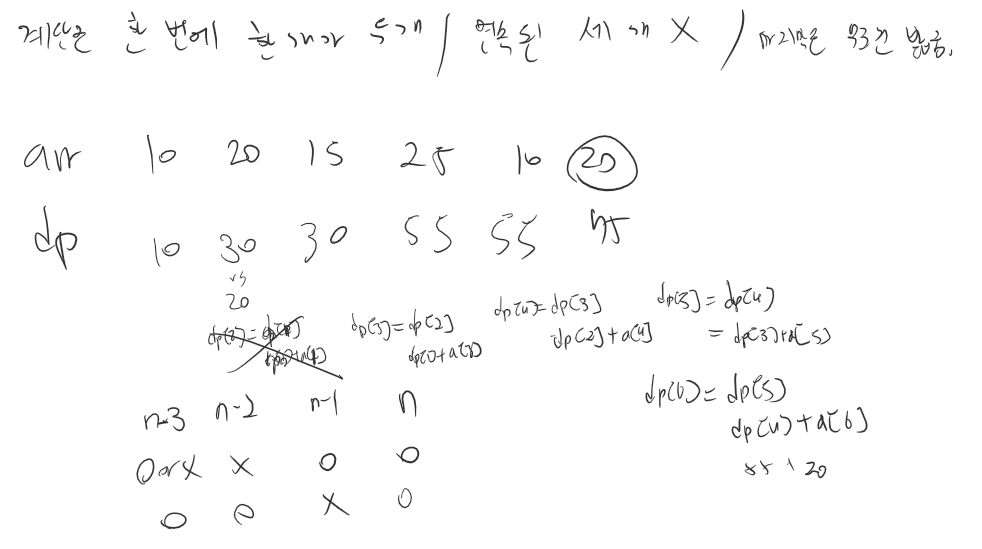 계단은 한 번에 한 개나 두개 / 연속된 세 개 X / 마지막은 무조건 밟음.
arr 10 20 15 25 10 20
dp 10 30 30 55 55 75
vs
20
dp[3]=dp[2]
dp[1]+a[3]
dp[4]=dp[3]
dp[2]+a[4]
dp[5]=dp[4]
=dp[3]+a[5]
dp[6]=dp[5]
dp[4]+a[6]
55+20
n-3 n-2 n-1 n
O or X X O O
O O X O